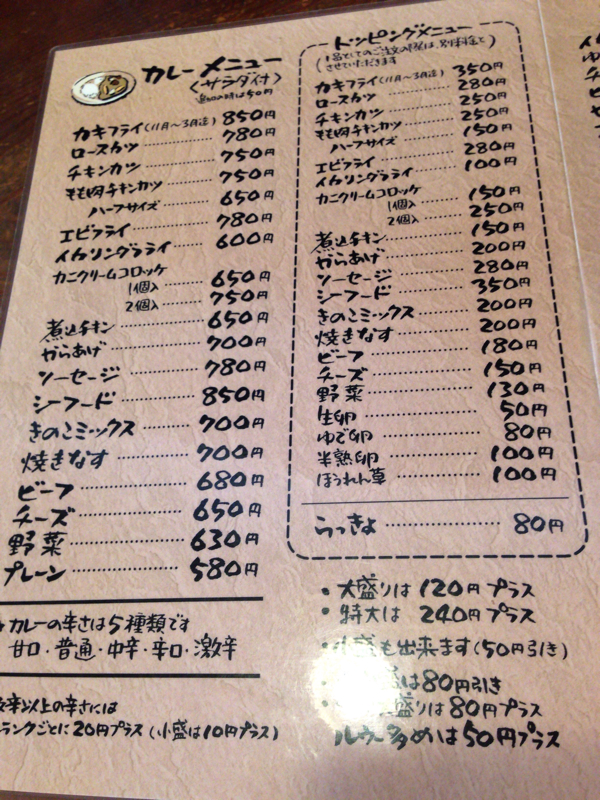 カレーメニュー
〈サラダ付〉
カキフライ(11月〜3月迄) 850円
ロースカツ 780円
チキンカツ 750円
もも肉チキンカツ 750円
ハーフサイズ 650円
エビフライ 780円
イカリングフライ 600円
カニクリームコロッケ
1個入 650円
2個入 750円
煮込チキン 650円
からあげ 700円
ソーセージ 780円
シーフード 850円
きのこミックス 700円
焼きなす 700円
ビーフ 680円
チーズ 650円
野菜 630円
プレーン 580円
カレーの辛さは5種類です
甘口・普通・中辛・辛口・激辛
辛以上の辛さには
ランクごとに20円プラス(小盛は10円プラス)
トッピングメニュー
させていただきます
カキフライ(11月〜3月迄) 350円
ロースカツ 280円
チキンカツ 250円
もも肉チキンカツ 250円
ハーフサイズ 150円
エビフライ 280円
イカリングフライ 100円
カニクリームコロッケ
1個入 150円
2個入 250円
煮込チキン 150円
からあげ 200円
ソーセージ 280円
シーフード 350円
きのこミックス 200円
焼きなす 200円
ビーフ 180円
チーズ 150円
野菜 130円
生卵 50円
ゆで卵 80円
半熟卵 100円
ほうれん草 100円
らっきょ 80円
・大盛りは120円プラス
・特大は 240円プラス
・小盛も出来ます(50円引き)
は80円引き
盛りは80円プラス
ルウ多めは50円プラス